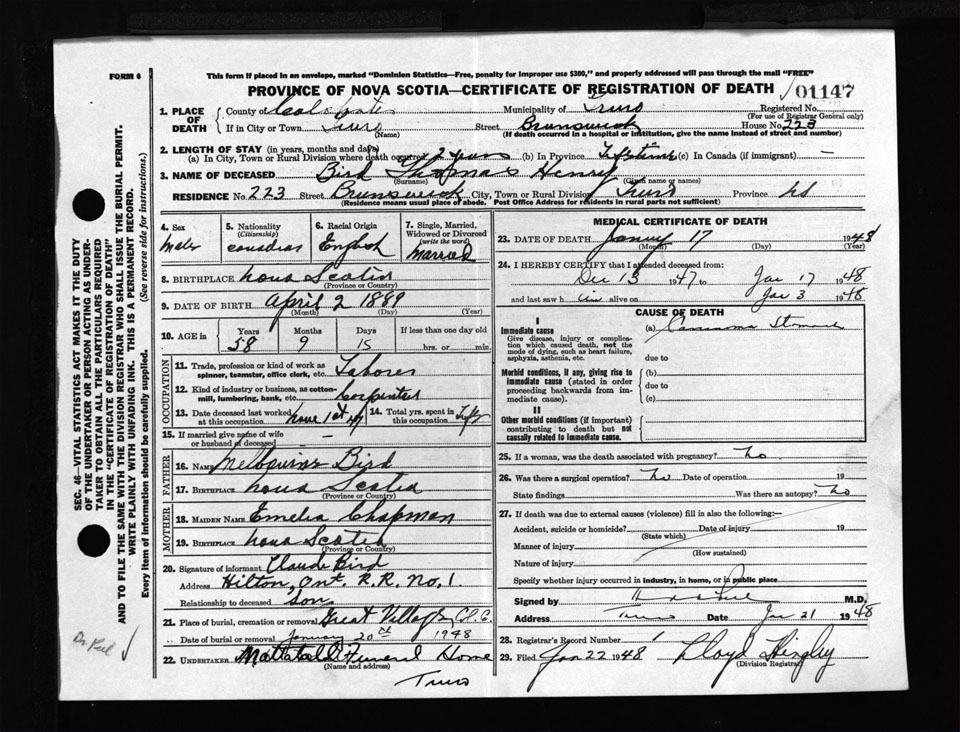 FORM 6
This form if placed in an envelope, marked "Dominion Statistics—Free, penalty for improper use $300," and properly addressed will pass through the mail "FREE"
PROVINCE OF NOVA SCOTIA—CERTIFICATE OF REGISTRATION OF DEATH
01147
1. PLACE OF DEATH
County of Colchester
Municipality of Truro
Registered No.
(For use of Registrar General only)
If in City or Town Truro
(Name)
Street Brunswick House No. 223
(If death occurred in a hospital or institution, give the name instead of street and number)
2. LENGTH OF STAY (in years, months and days)
(a) In City, Town or Rural Division where death occurred 2 years (b) In Province Lifetime (c) In Canada (if immigrant) —
3. NAME OF DECEASED Bird Thomas Henry
(Surname) (Given name or names)
RESIDENCE No. 223 Street Brunswick City, Town or Rural Division Truro Province NS
(Residence means usual place of abode. Post Office Address for residents in rural parts not sufficient)
4. Sex
Male
5. Nationality
(Citizenship)
Canadian
6. Racial Origin
English
7. Single, Married, Widowed or Divorced
(write the word)
Married
8. BIRTHPLACE Nova Scotia
(Province or Country)
9. DATE OF BIRTH April 2 1889
(Month) (Day) (Year)
10. AGE in
Years Months Days If less than one day old
58 9 15 hrs. or min.
OCCUPATION
11. Trade, profession or kind of work as spinner, teamster, office clerk, etc. Laborer
12. Kind of industry or business, as cotton-mill, lumbering, bank, etc. Carpenter
13. Date deceased last worked at this occupation
14. Total yrs. spent in this occupation
15. If married give name of wife or husband of deceased —
FATHER
16. NAME Bird
17. BIRTHPLACE Nova Scotia
(Province or Country)
MOTHER
18. MAIDEN NAME Emelia Chapman
19. BIRTHPLACE Nova Scotia
(Province or Country)
20. Signature of informant Claude Bird
Address Hilton, Ont. R.R. No. 1.
Relationship to deceased Son
21. Place of burial, cremation or removal Great Village
Date of burial or removal January 20th 1948
22. UNDERTAKER Mattatall Funeral Home
(Name and address)
Truro
MEDICAL CERTIFICATE OF DEATH
23. DATE OF DEATH 17 1948
(Month) (Day) (Year)
24. I HEREBY CERTIFY that I attended deceased from:
Dec 13 1947 to Jan 17 1948
and last saw him alive on Jan 3 1948
CAUSE OF DEATH
I
Immediate cause
Give disease, injury or complication which caused death, not the mode of dying, such as heart failure, asphyxia, asthenia, etc.
(a) Carcinoma Stomach
due to
Morbid conditions, if any, giving rise to immediate cause (stated in order proceeding backwards from immediate cause).
(b)
due to
(c)
II
Other morbid conditions (if important) contributing to death but not causally related to immediate cause.
25. If a woman, was the death associated with pregnancy? No
26. Was there a surgical operation? No Date of operation 19
State findings Was there an autopsy? No
27. If death was due to external causes (violence) fill in also the following:—
Accident, suicide or homicide? Date of injury 19
(State which)
Manner of injury
(How sustained)
Nature of injury
Specify whether injury occurred in industry, in home, or in public place
Signed by M.D.
Address Truro Date Jan 21 1948
28. Registrar's Record Number 1
29. Filed Jan 22 1948 Lloyd Hingley
(Division Registrar)
SEC. 46—VITAL STATISTICS ACT MAKES IT THE DUTY
OF THE UNDERTAKER OR PERSON ACTING AS UNDER-
TAKER TO OBTAIN ALL THE PARTICULARS REQUIRED
IN THE "CERTIFICATE OF REGISTRATION OF DEATH"
AND TO FILE THE SAME WITH THE DIVISION REGISTRAR WHO SHALL ISSUE THE BURIAL PERMIT.
WRITE PLAINLY WITH UNFADING INK. THIS IS A PERMANENT RECORD.
Every item of information should be carefully supplied. (See reverse side for instructions.)